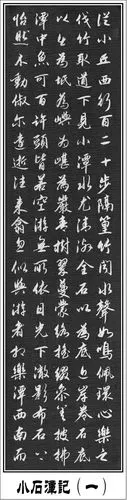 從小丘西行百二十步隔篁竹聞水聲如鳴佩環心樂之
伐竹取道下見小潭水尤清洌全石以為底近岸卷石底
以出為坻為嶼為嵁為巖青樹翠蔓蒙絡搖綴參差披拂
潭中魚可百許頭皆若空游無所依日光下澈影布石上
怡然不動俶爾遠逝往來翕忽似與游者相樂潭西南而
小石潭記（一）